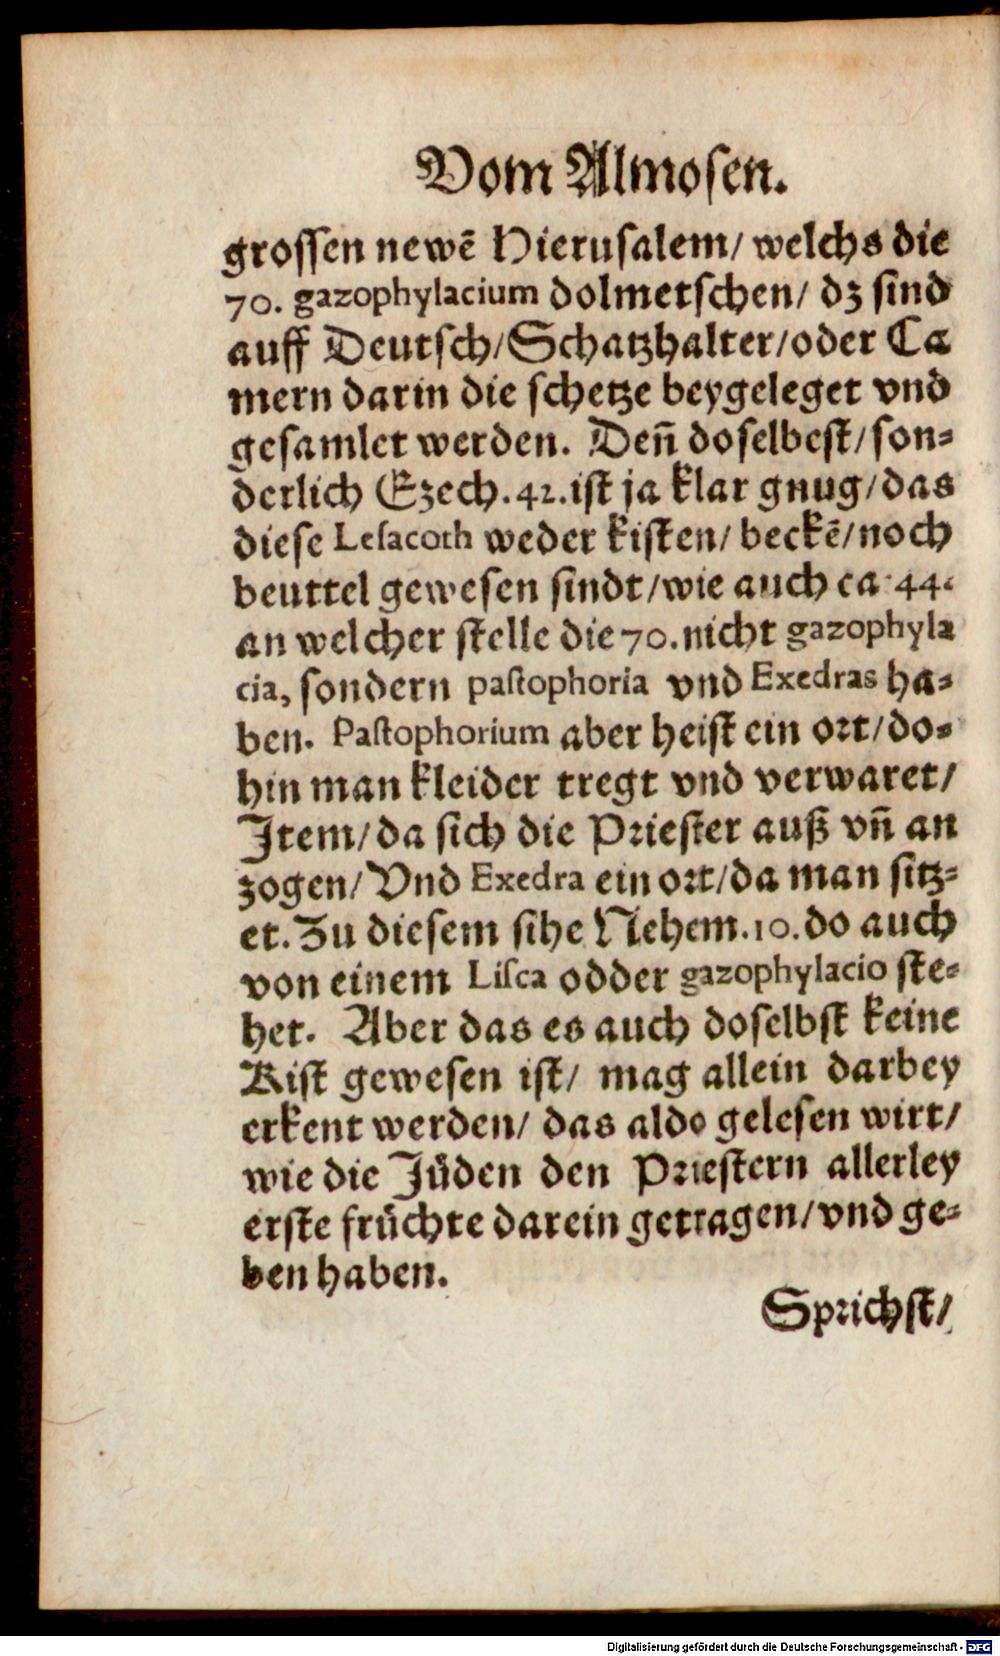 Vom Almosen.
grossen newē Hierusalem/ welchs die
70. gazophylacium dolmetschen/ dz sind
auff Deutsch/Schatzhalter/oder Ca
mern darin die schetze beygeleget vnd
gesamlet werden. Deñ doselbest/son⸗
derlich Ezech.42.ist ja klar gnug/das
diese Lesacoth weder kisten/ beckē/noch
beuttel gewesen sindt/wie auch ca 44.
an welcher stelle die 70.nicht gazophyla
cia, sondern pastophoria vnd Exedras ha⸗
ben. Pastophorium aber heist ein ort/do⸗
hin man kleider tregt vnd verwaret/
Jtem/da sich die Priester auß vñ an
zogen/Vnd Exedra ein ort/da man sitz⸗
et. Zu diesem sihe Nehem.10.do auch
von einem Lisca odder gazophylacio ste⸗
het. Aber das es auch doselbst keine
Kist gewesen ist/ mag allein darbey
erkent werden/ das aldo gelesen wirt/
wie die Jüden den Priestern allerley
erste früchte darein getragen/vnd ge⸗
ben haben.
Sprichst/
Digitalisierung gefördert durch die Deutsche Forschungsgemeinschaft - DFG